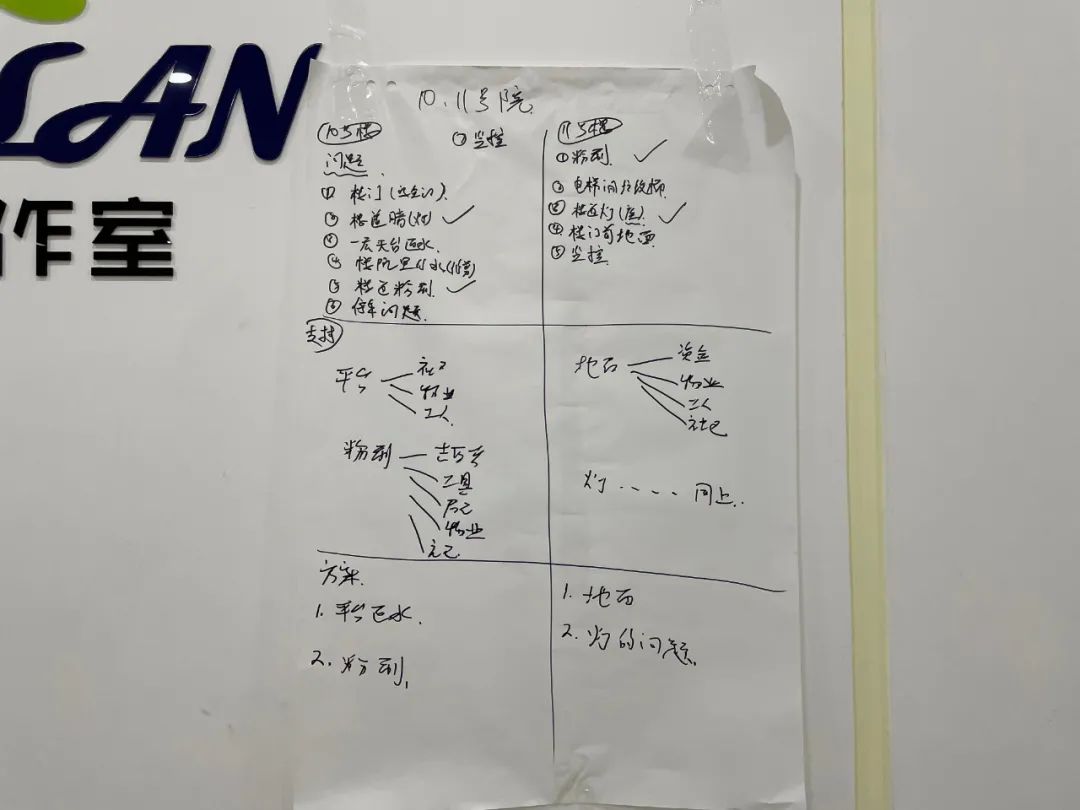 LAN
作室
10.11号院.
10号楼
⑦监控
问题
① 楼门(安全门).
② 楼道暗(灯) ✓
③ 一层天台匹水.
④ 楼院里
⑤ 楼道粉刷. ✓
⑥ 停车问题.
11号楼
①粉刷. ✓
② 电梯间
③ 楼道灯(层). ✓
④ 楼门前地面
⑤ 监控
支持
平台
社区
物业
工人.
粉刷
工具
居民
物业
社区.
地面
资金
物业
工人
社区
灯 . - - - 同上..
方案.
1. 平台匹水.
2. 粉刷.
1. 地面
2. 灯的问题.